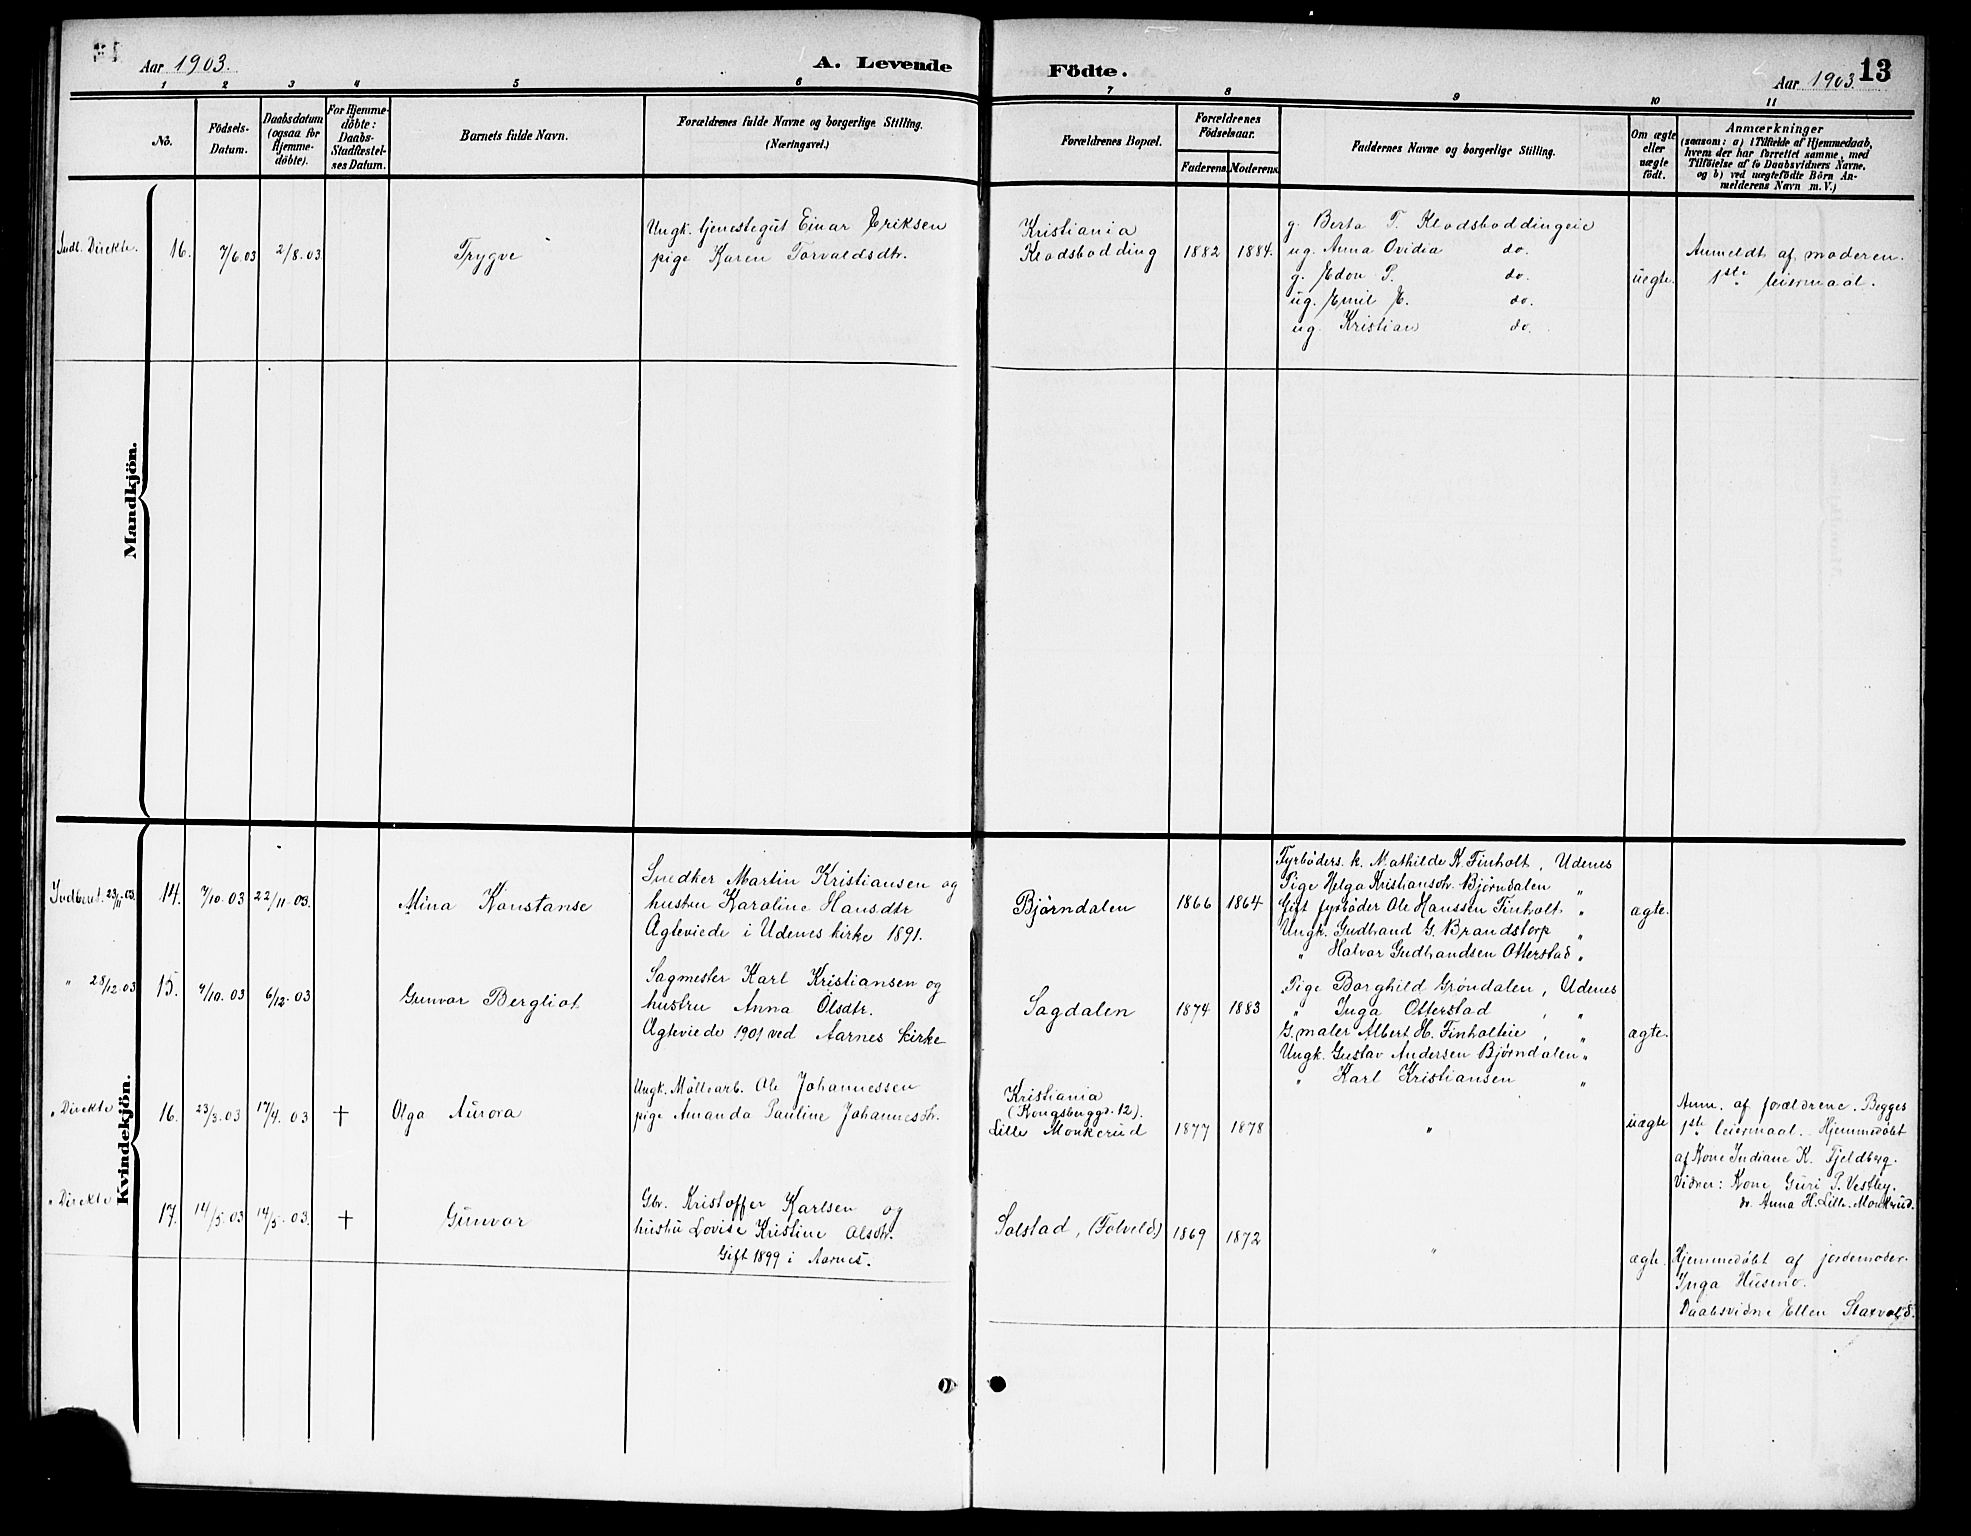 Aar 1903.
A. Levende Födte.
Aar 1903.
13
1 2 3 4 5 6 7 8 9 10 11
No.
Födsels-
Datum.
Daabsdatum
(ogsaa for
Hjemme-
döbte).
For Hjemme-
döbte:
Daabs-
Stadfæstel-
ses Datum.
Barnets fulde Navn.
Forældrenes fulde Navne og borgerlige Stilling.
(Næringsvei.)
Forældrenes Bopæl.
Forældrenes
Födselsaar.
Faderens. Moderens.
Faddernes Navne og borgerlige Stilling.
Om ægte
eller
uægte
født.
Anmærkninger
(saasom: a) i Tilfælde af Hjemmedaab,
hvem der har forrettet samme, med
Tilföielse af to Daabsvidners Navne,
og b) ved uægtefödte Börn An-
melderens Navn m. V.)
Mandkjön.
Indl. Direkte. 16. 7/6 03 2/8 03
Trygve
Ungk. tjenestegut Einar Eriksen
pige Karen Torvaldsdtr.
Kristiania
Klodsbodding
1882 1884.
g. Berta T. Klodsboddingeie
ug. Anna Ovidia do.
g. Edon P. do.
ug. Emil E. do.
ug. Kristian do.
uegte.
Anmeldt af moderen.
1ste leiermaal.
Kvindekjön.
Indberet. 23/11 03. 14. 7/10 03 22/11 03.
Mina Konstanse
Snedker Martin Kristiansen og
hustru Karoline Hansdtr
Ægteviede i Udenes kirke 1891.
Bjørndalen
1866 1864
Fyrbøders. k. Mathilde K. Finholt, Udenes
Pige Helga Kristiansdtr. Bjørndalen "
Gift fyrbøder Ole Hanssen Finholt "
Ungk. Gudbrand G. Brandstorp "
" Halvor Gudbrandsen Otterstad "
ægte.
" 28/12 03 15. 9/10 03 6/12 03
Gunvor Bergliot
Sagmester Karl Kristiansen og
hustru Anna Olsdtr.
Ægteviede 1901 ved Aarnes kirke
Sagdalen
1874 1883
Pige Borghild Grøndalen, Udenes
" Inga Otterstad , "
G. maler Albert H. Finholteie , "
Ungk. Gustav Andersen Bjørndalen "
" Karl Kristiansen "
ægte.
" Direkte 16. 23/3 03 17/4 03 †
Olga Aurora
Ungk. Møllearb. Ole Johannessen
pige Amanda Pauline Johannesdtr.
Kristiania
(Kongsberggd. 12).
Lille Monkerud
1877 1878
"
uægte
Anm. af forældrene. Begges
1ste leiermaal. Hjemmedøbt
af Kone Indiane K. Fjeldberg.
Vidner: Kone Guri P. Vestby.
do. Anna H. Lille-Monkrud.
" Direkte 17. 14/5 03 14/5 03. †
Gunvor
Gbr. Kristoffer Karlsen og
hustru Lovise Kristine Olsdtr.
Gift 1899 i Aarnes.
Solstad, (Folveld)
1869 1872
"
ægte.
Hjemmedøbt af jordemoder
Inga Husmo.
Daabsvidne Ellen Starvold.